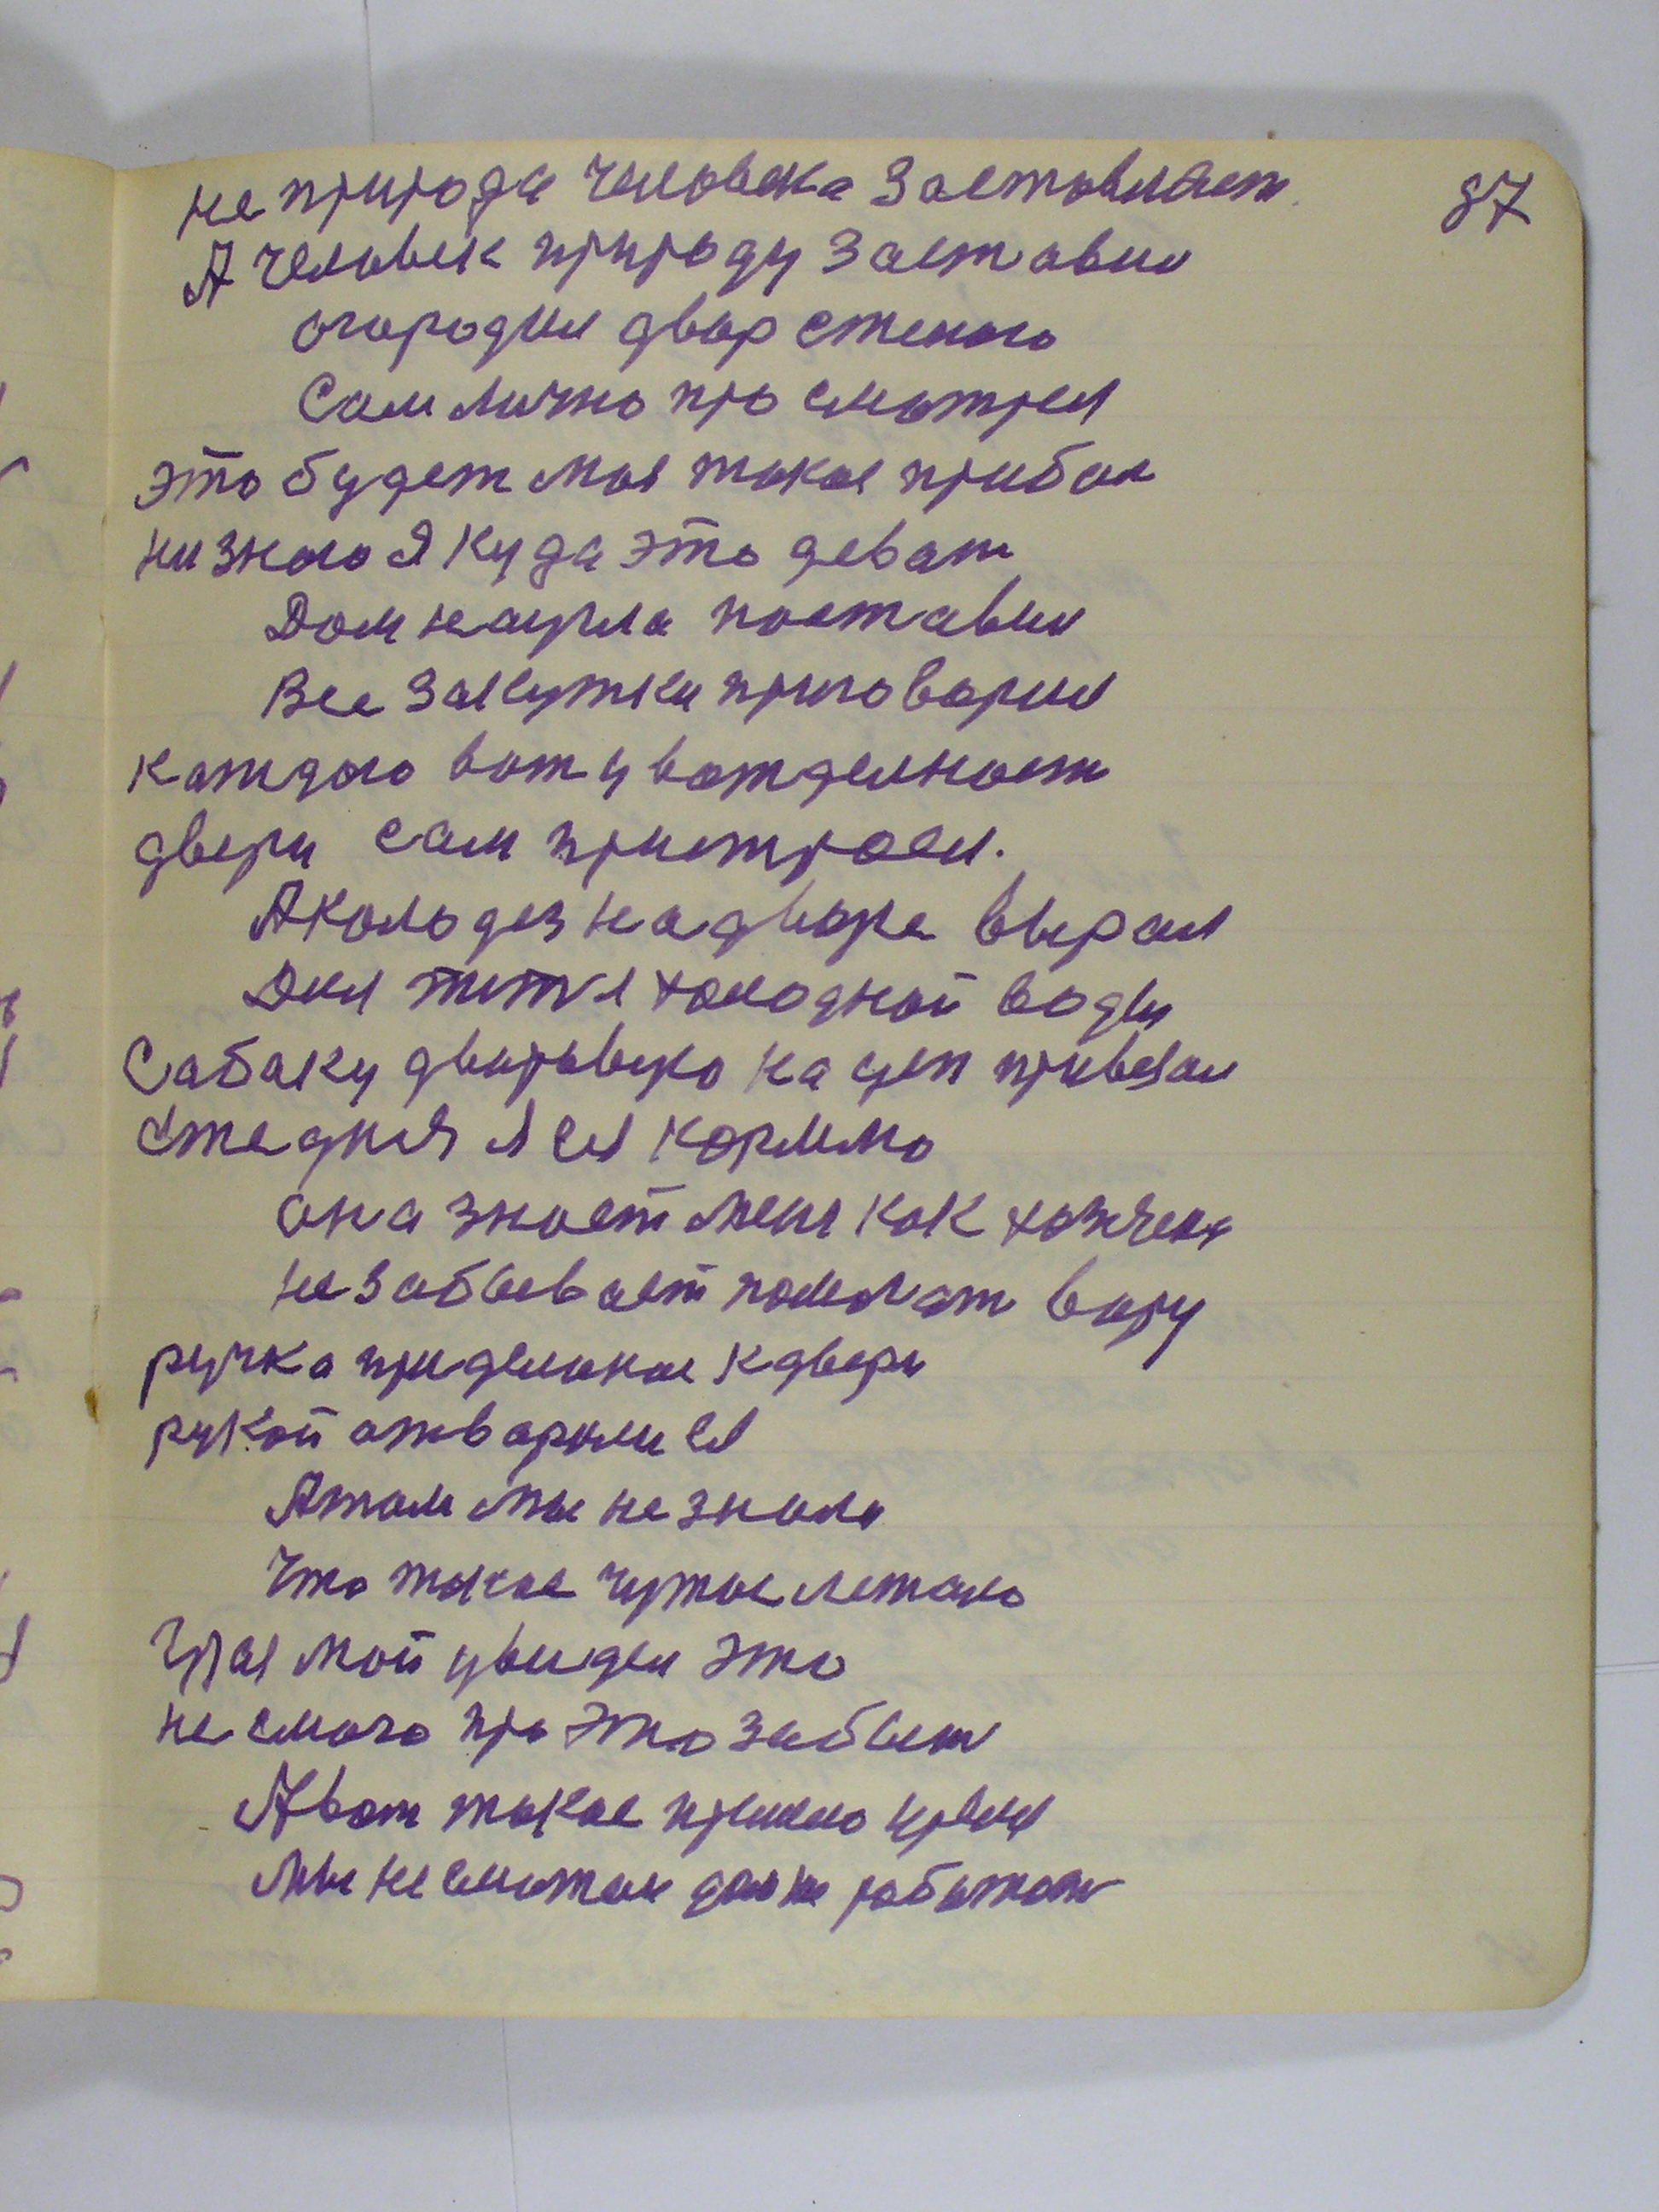 87
не природа человека заставляет.
А человек природу заставил
огородил двор стеного
Сам лично просмотрел
это будет мая такая прибал
ни знаю я куда это деват
Дом на угла поставил
Все закутки приговорил
каждого вот у вотделност
двери сам пристроел.
А колодез на дворе вырал
Для житя холодной воды
Сабаку дваровую на цеп привезал
Ежедня я ея кормлю
она знает меня как хозяена
не забывает помагат вору
ручка приделоная к двери
рукой отварялися
А там мы не знали
Что такое чужое летало
Глаз мой увидел это
не смого про это забыт
А вот такое пришло время
Мы не сможем даже работат